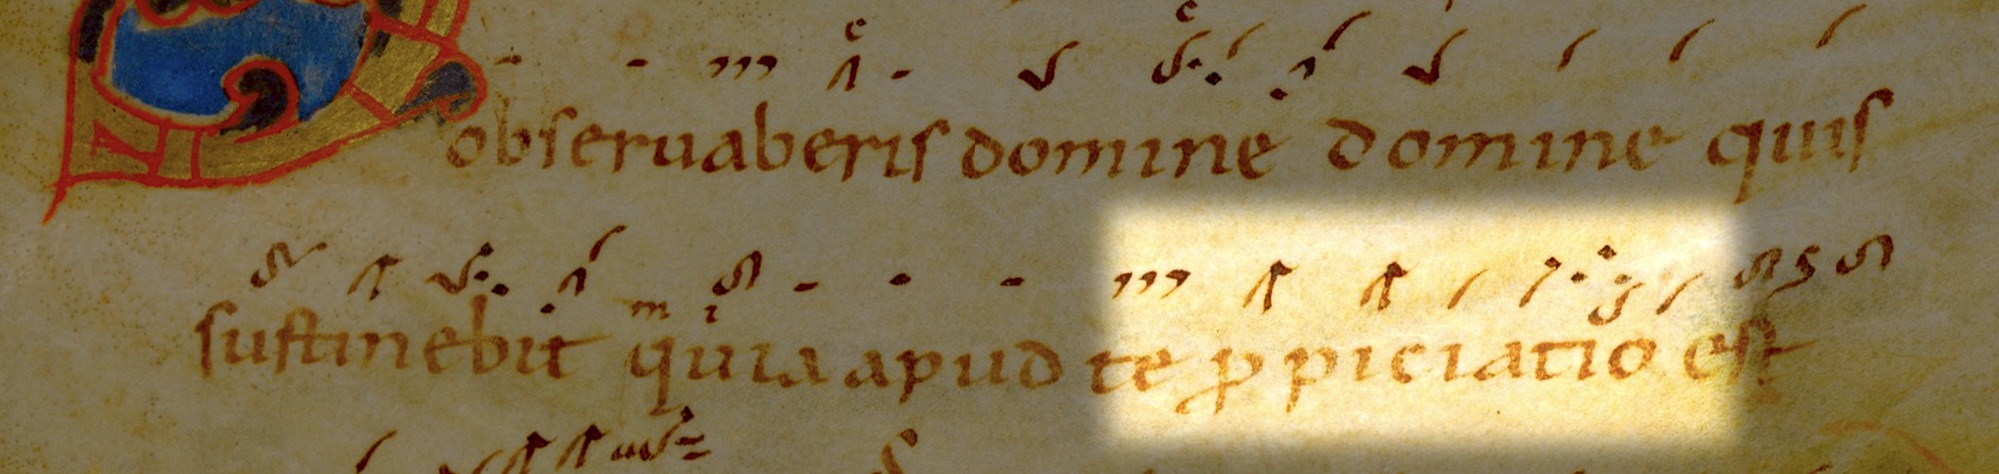 obseruaberis domine domine quis
sustinebit quia apud te ꝓpiciatio est